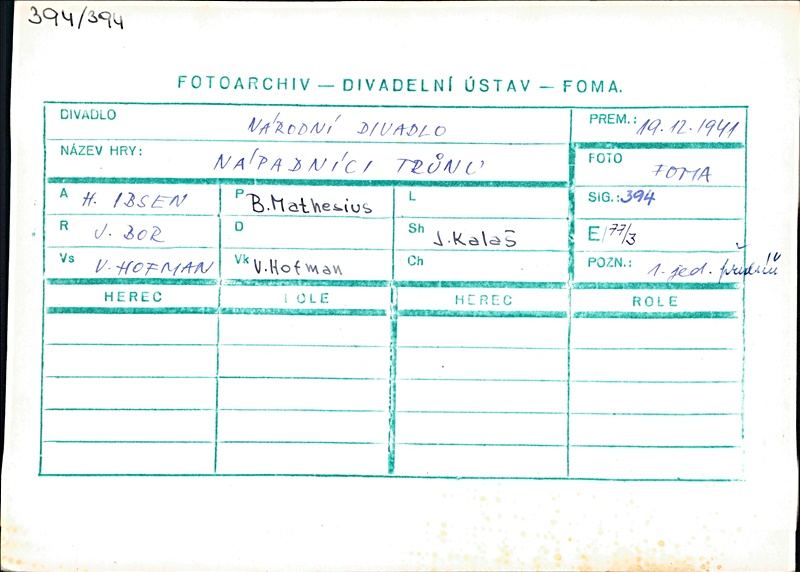 394/394
FOTOARCHIV — DIVADELNÍ ÚSTAV — FOMA.
DIVADLO NÁRODNÍ DIVADLO PREM.: 19.12.1941
NÁZEV HRY: NÁPADNÍCI TRŮNU FOTO FOMA
A H. IBSEN P B.Mathesius L SIG.: 394
R J. BOR D Sh J.Kalaš E 77/3
Vs V. HOFMAN Vk V.Hofman Ch POZN.: 1. jed.
HEREC ROLE HEREC ROLE